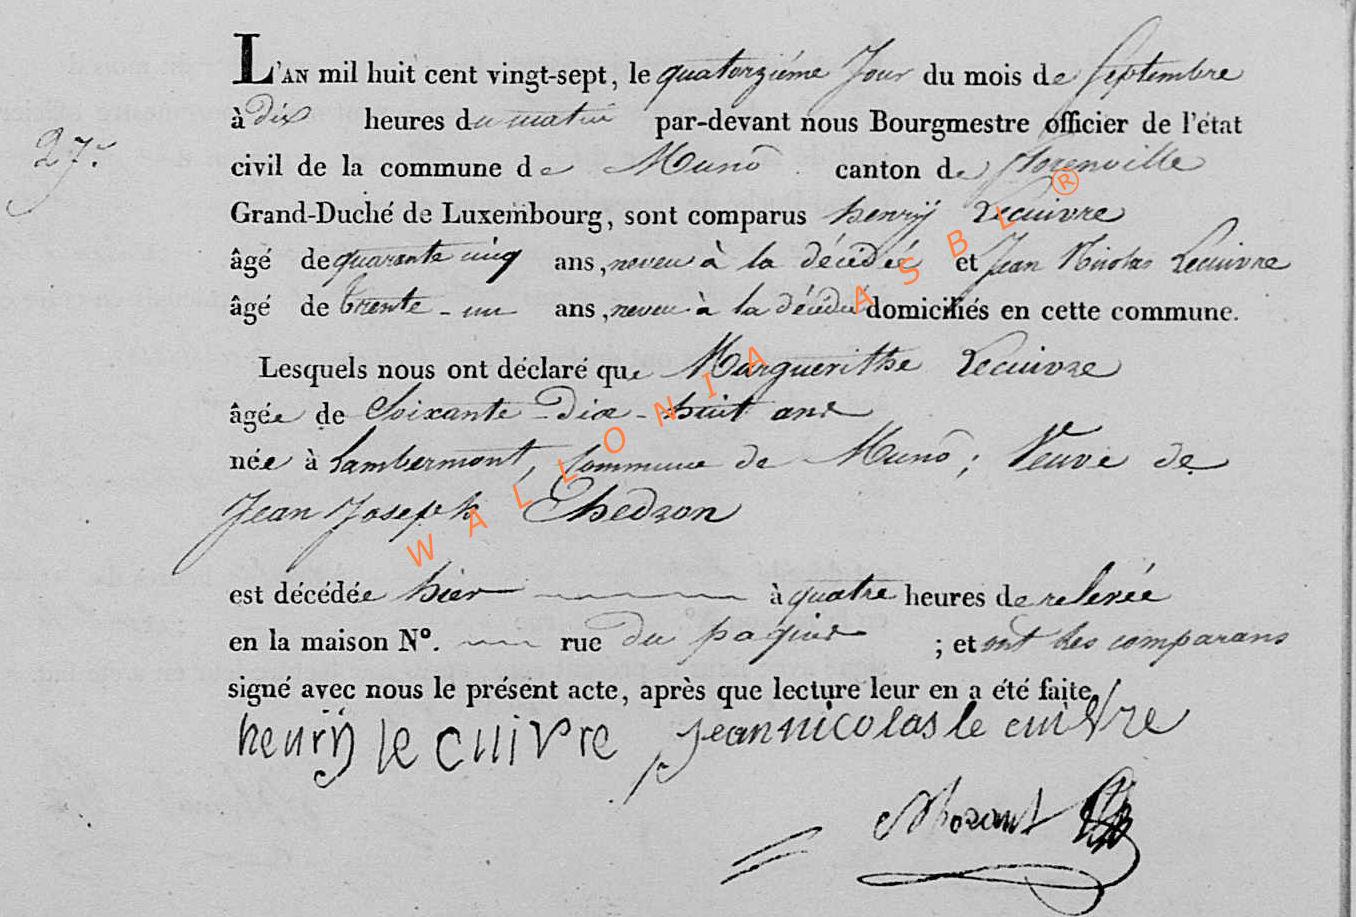 L'AN mil huit cent vingt-sept, le quatorziéme Jour du mois de Septembre
à dix heures du matin par-devant nous Bourgmestre officier de l'état
27.
civil de la commune de Muno canton de florenville
Grand-Duché de Luxembourg, sont comparus henrÿ Lecuivre
âgé de quarante cinq ans, neveu à la décédée et Jean Nicolas Lecuivre
âgé de trente-un ans, neveu à la décédée domiciliés en cette commune.
Lesquels nous ont déclaré que Marguerithe Lecuivre
âgée de Soixante Dix-huit ans
née à Lambermont, Commune de Muno; Veuve de
Jean Joseph Thedron
est décédée hier à quatre heures de relevée
en la maison N°. rue du paquis ; et ont les comparans
signé avec nous le présent acte, après que lecture leur en a été faite
henrÿ le cuivre jean nicolas le cuivre
WALLONIA ASBL ®